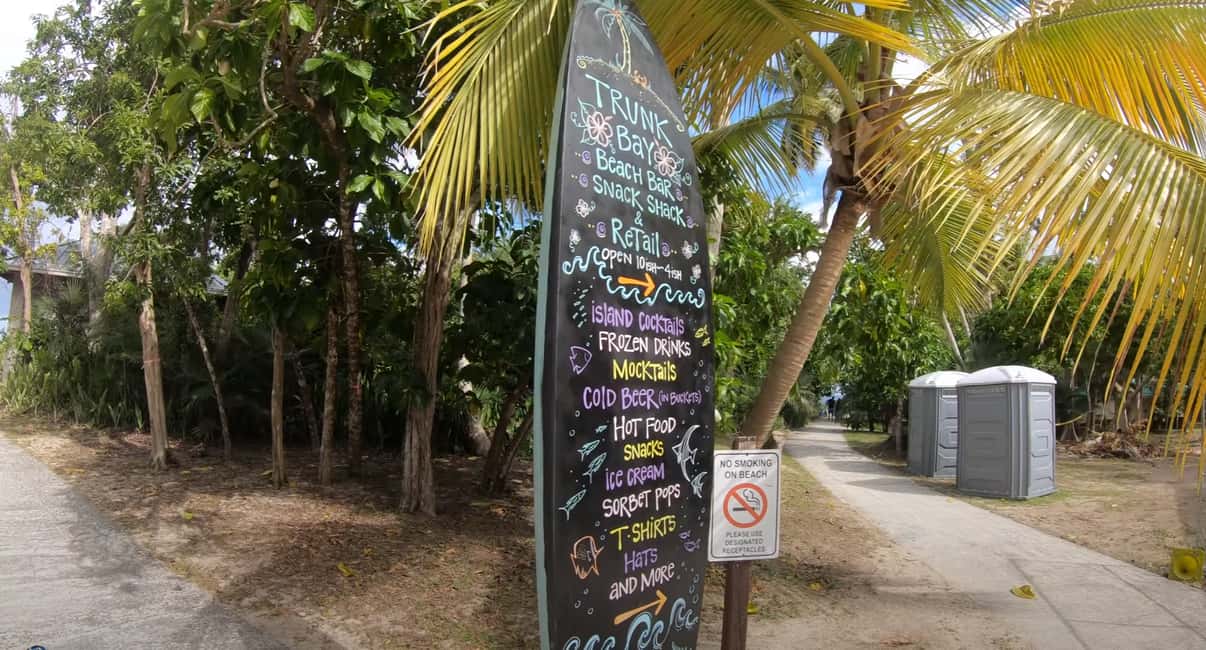 TRUNK
BAY
BEACH BAR
SNACK SHACK
&
RETAIL
OPEN 10ISH-4ISH
ISLAND COCKTAILS
FROZEN DRINKS
MOCKTAILS
COLD BEER (IN BUCKETS)
HOT FOOD
SNACKS
ICE CREAM
SORBET POPS
T-SHIRTS
HATS
AND MORE
NO SMOKING
ON BEACH
PLEASE USE
DESIGNATED
RECEPTACLES